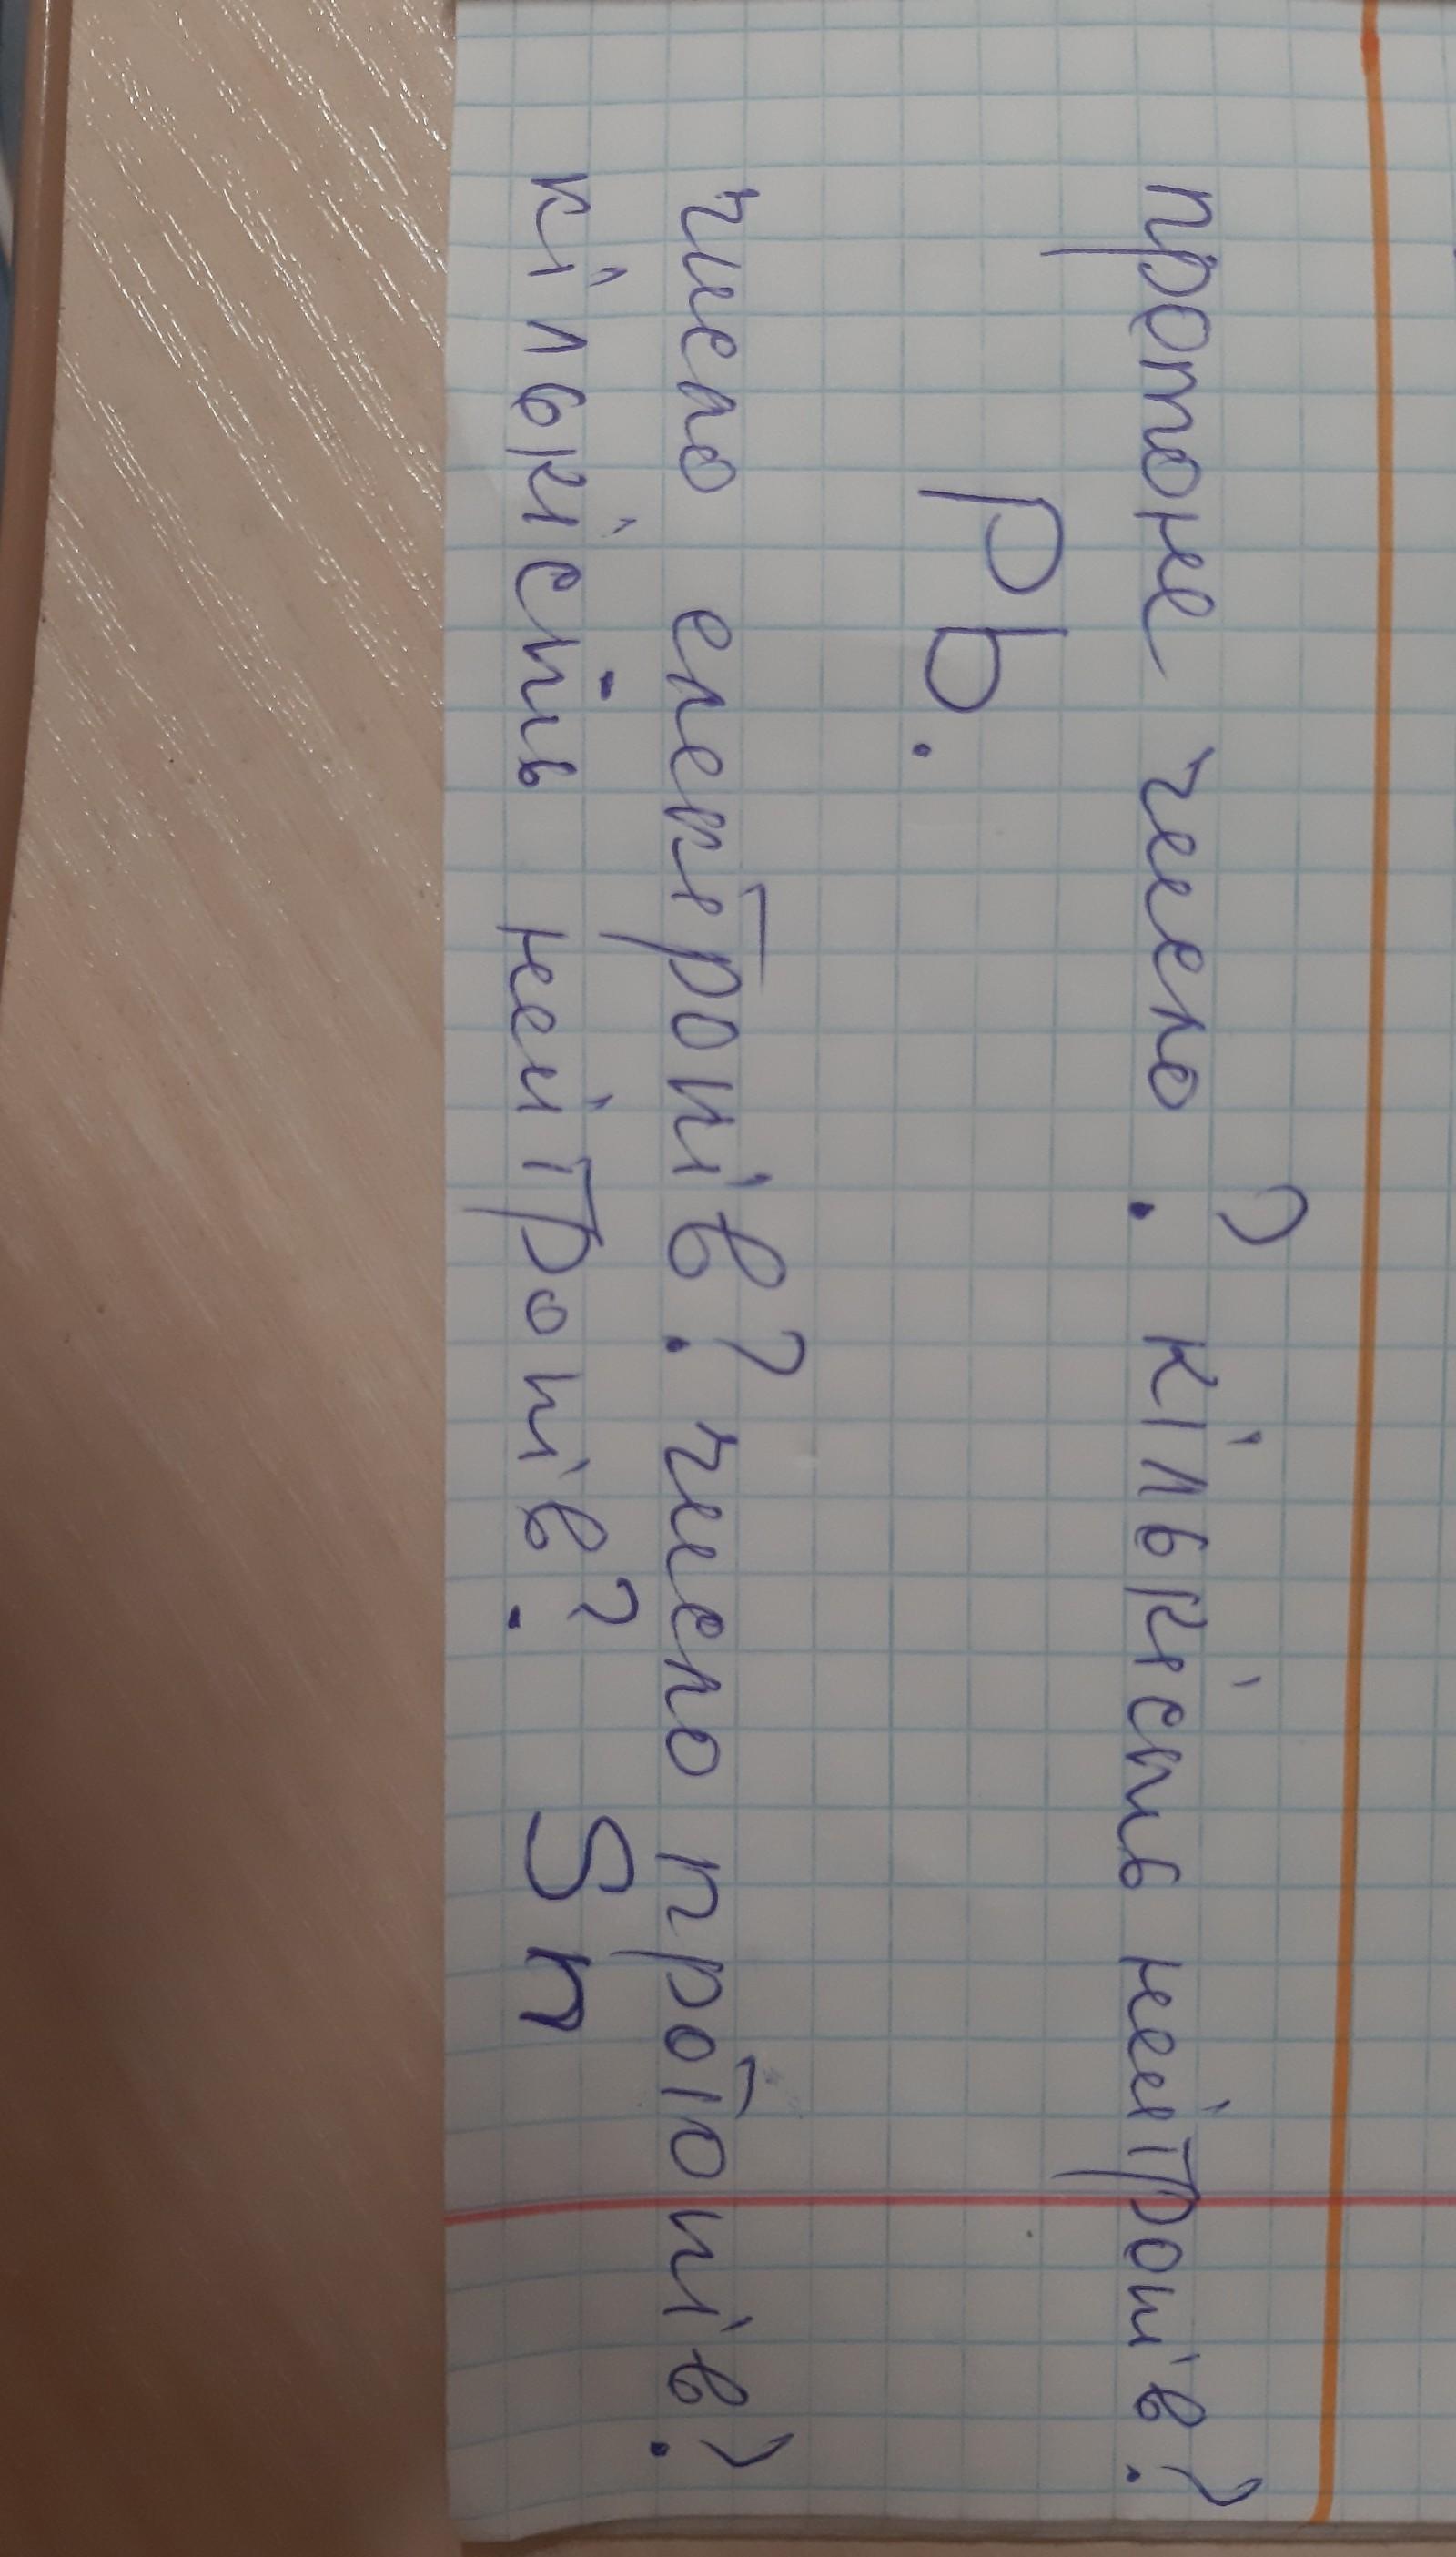 протоне число? кількість нейтронів?
Pb.
число електронів? число протонів?
кількість нейтронів? Sn